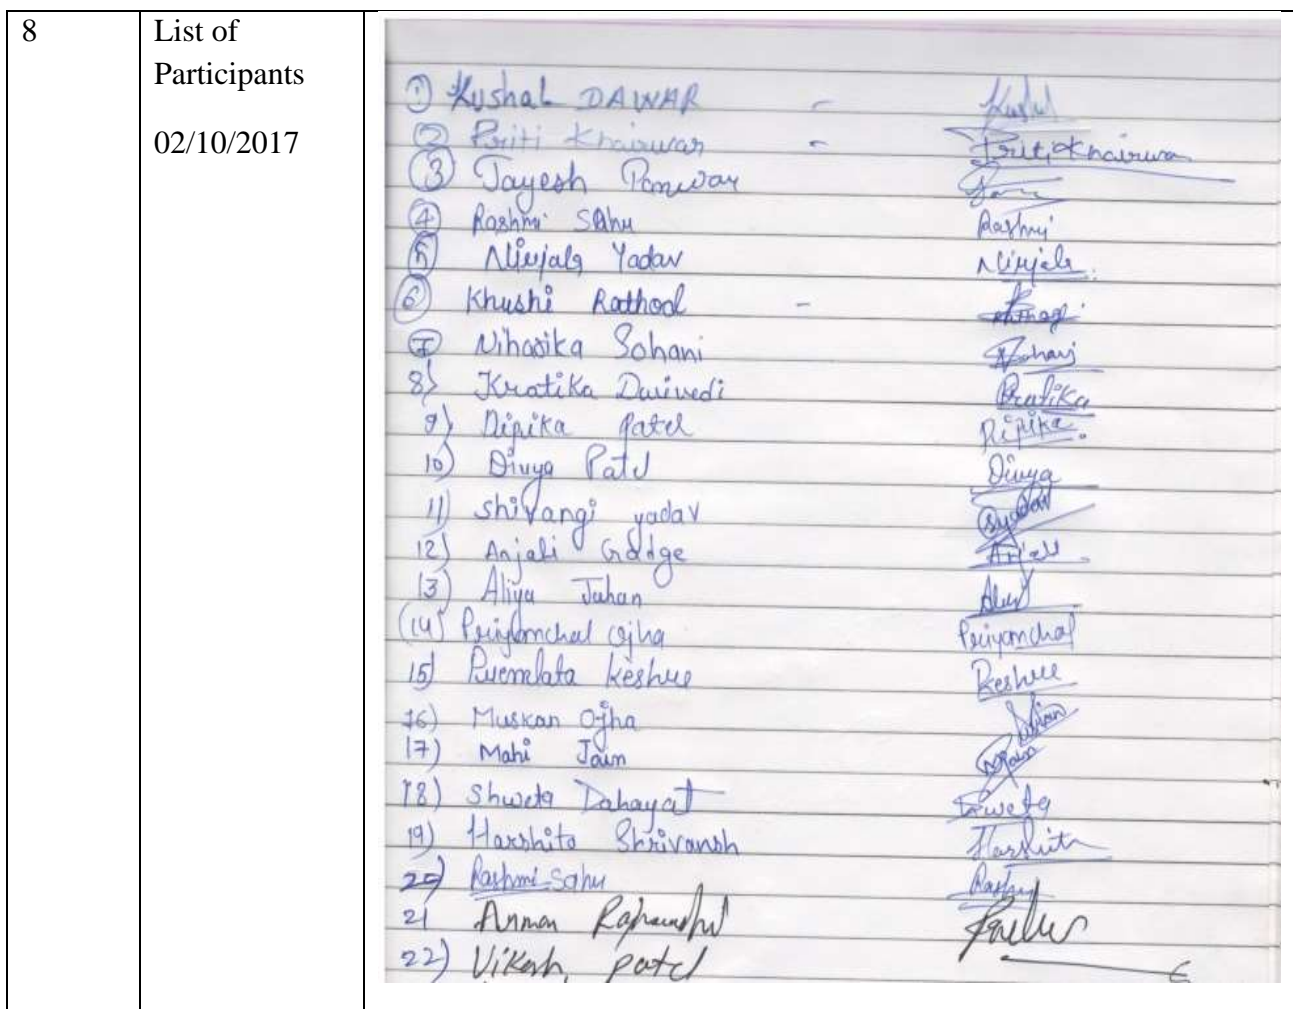 8
List of
Participants
02/10/2017
① Kushal DAWAR - Kushal
② Priti Khairwar - Priti Khairwar
③ Jayesh Panwar
④ Rashmi Sahu Rashmi
⑤ Nirjala Yadav Nirjala
⑥ Khushi Rathod -
⑦ Niharika Sohani Sohani
8) Kratika Dwivedi Kratika
9) Dipika Patel Dipika
10) Divya Patel Divya
11) Shivangi yadav Syadav
12) Anjali Gadge Anjali
13) Aliya Jahan
(14) Priyamchal Ojha Priyamchal
15) Premlata Keshre Keshre
16) Muskan Ojha
17) Mahi Jain Mjain
18) Shweta Dahayat Shweta
19) Harshita Shrivansh Harshita
20) Rashmi Sahu Rashmi
21 Arman
22) Vikash Patel